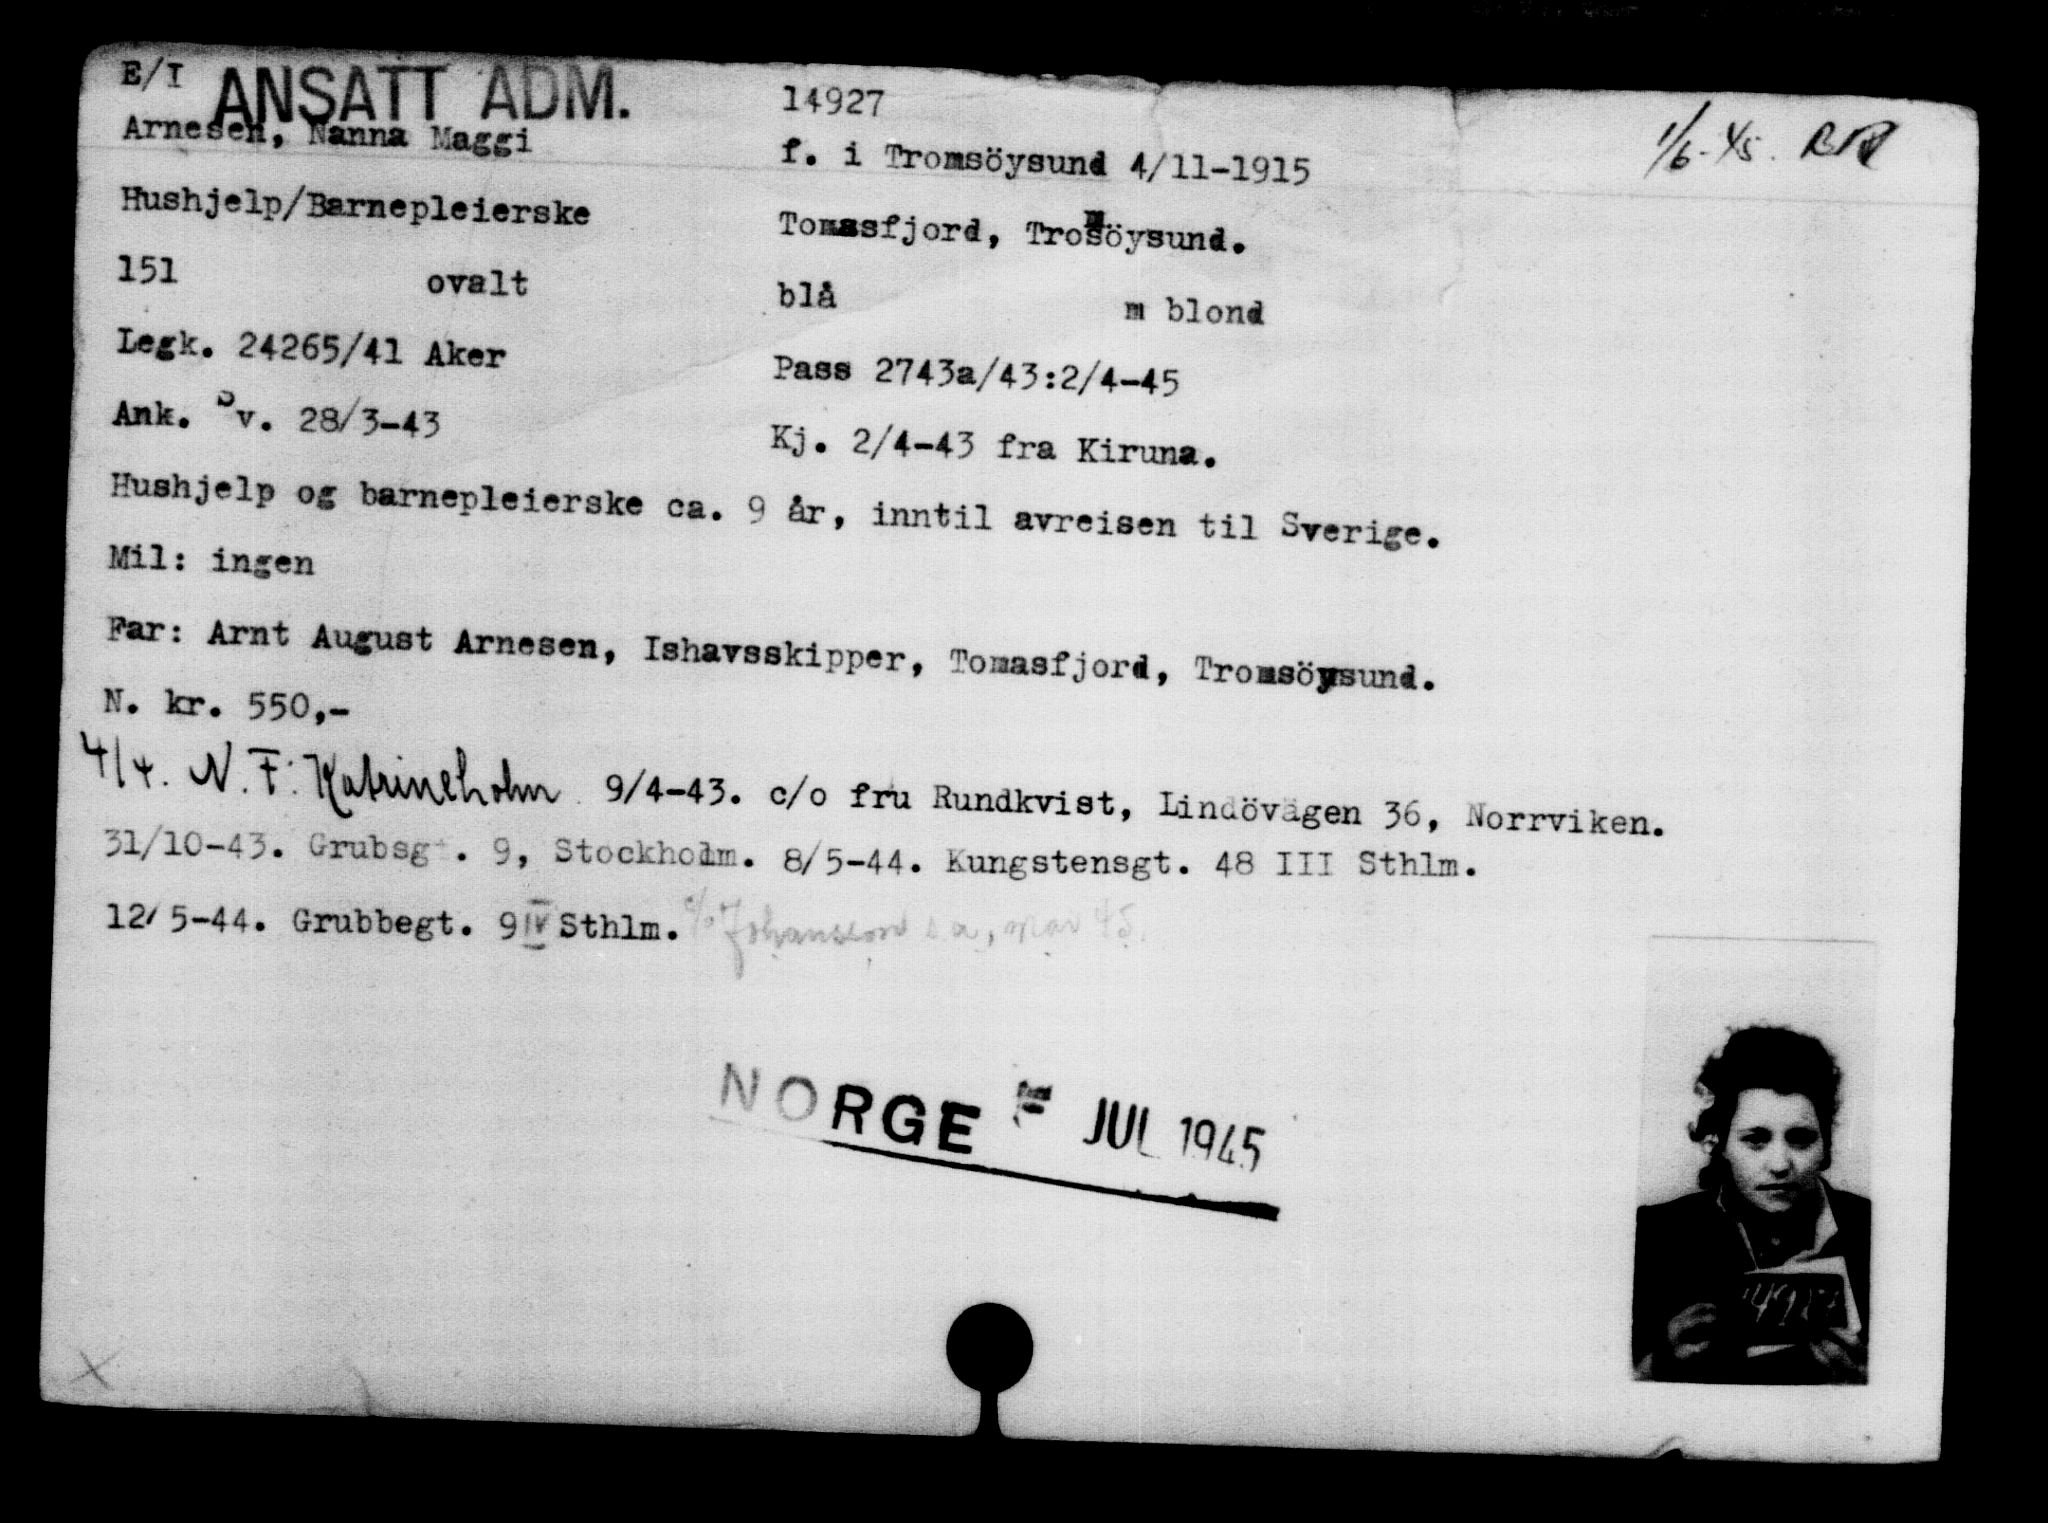 E/I ANSATT ADM. 14927
1/6-45.
Arnesen, Nanna Maggi f. i Tromsöysund 4/11-1915
Hushjelp/Barnepleierske Tomasfjord, Tromsöysund.
151 ovalt blå m blond
Legk. 24265/41 Aker Pass 2743a/43:2/4-45
Ank. Sv. 28/3-43 Kj. 2/4-43 fra Kiruna.
Hushjelp og barnepleierske ca. 9 år, inntil avreisen til Sverige.
Mil: ingen
Far: Arnt August Arnesen, Ishavsskipper, Tomasfjord, Tromsöysund.
N. kr. 550,-
4/4. N. F. Katrineholm 9/4-43. c/o fru Rundkvist, Lindövägen 36, Norrviken.
31/10-43. Grubsgt. 9, Stockholm. 8/5-44. Kungstensgt. 48 III Sthlm.
12/5-44. Grubbegt. 9 IV Sthlm. c/o Johansson
NORGE JUL 1945